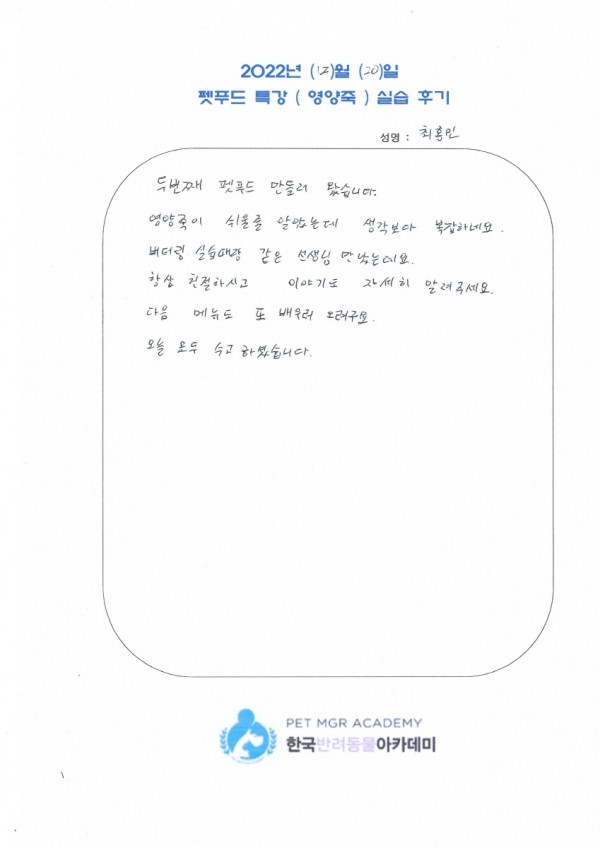 2022년 (12)월 (20)일
펫푸드 특강 ( 영양죽 ) 실습 후기
성명 : 최홍인
두번째 펫푸드 만들러 왔습니다.
영양죽이 쉬울줄 알았는데 생각보다 복잡하네요.
버터링 실습때랑 같은 선생님 만났는데요.
항상 친절하시고 이야기도 자세히 알려주세요.
다음 메뉴도 또 배우러 오려구요.
오늘 모두 수고하셨습니다.
PET MGR ACADEMY
한국반려동물아카데미